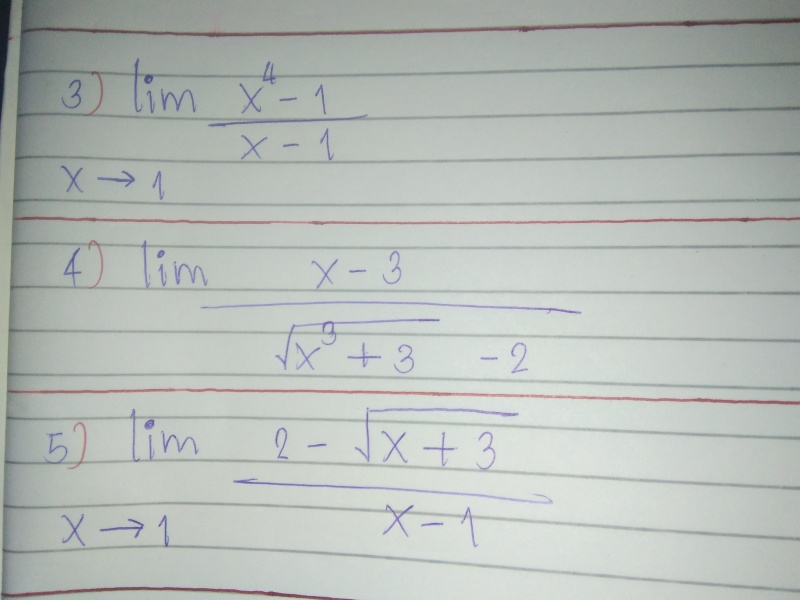 3) lim x⁴ - 1
x - 1
x → 1
4) lim x - 3
√x³ + 3 - 2
5) lim 2 - √x + 3
x → 1 x - 1